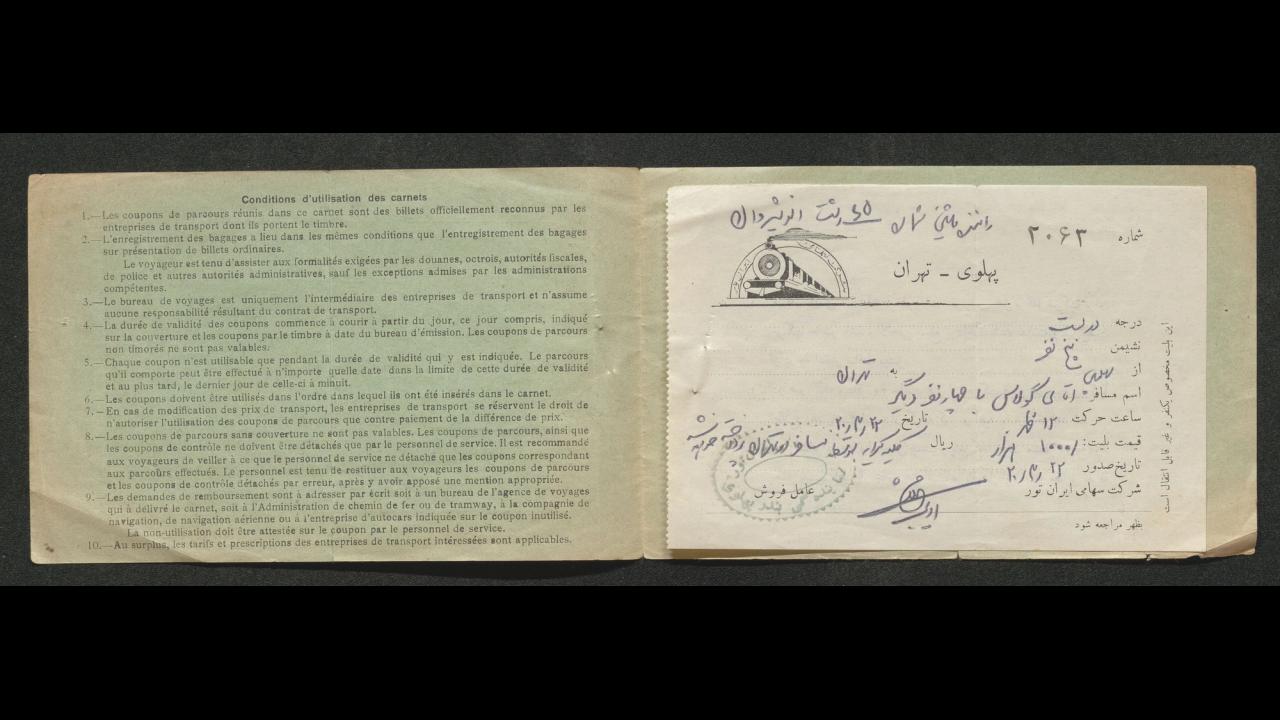 Conditions d'utilisation des carnets
1.—Les coupons de parcours réunis dans ce carnet sont des billets officiellement reconnus par les
entreprises de transport dont ils portent le timbre.
2.—L'enregistrement des bagages a lieu dans les mêmes conditions que l'entregistrement des bagages
sur présentation de billets ordinaires.
Le voyageur est tenu d'assister aux formalités exigées par les douanes, octrois, autorités fiscales,
de police et autres autorités administratives, sauf les exceptions admises par les administrations
compétentes.
3.—Le bureau de voyages est uniquement l'intermédiaire des entreprises de transport et n'assume
aucune responsabilité résultant du contrat de transport.
4.—La durée de validité des coupons commence à courir à partir du jour, ce jour compris, indiqué
sur la couverture et les coupons par le timbre à date du bureau d'émission. Les coupons de parcours
non timorés ne sont pas valables.
5.—Chaque coupon n'est utilisable que pendant la durée de validité qui y est indiquée. Le parcours
qu'il comporte peut être effectué à n'importe quelle date dans la limite de cette durée de validité
et au plus tard, le dernier jour de celle-ci à minuit.
6.—Les coupons doivent être utilisés dans l'ordre dans lequel ils ont été insérés dans le carnet.
7.—En cas de modification des prix de transport, les entreprises de transport se réservent le droit de
n'autoriser l'utilisation des coupons de parcours que contre paiement de la différence de prix.
8.—Les coupons de parcours sans couverture ne sont pas valables. Les coupons de parcours, ainsi que
les coupons de contrôle ne doivent être détachés que par le personnel de service. Il est recommandé
aux voyageurs de veiller à ce que le personnel de service ne détache que les coupons correspondant
aux parcours effectués. Le personnel est tenu de restituer aux voyageurs les coupons de parcours
et les coupons de contrôle détachés par erreur, après y avoir apposé une mention appropriée.
9.—Les demandes de remboursement sont à adresser par écrit soit à un bureau de l'agence de voyages
qui a délivré le carnet, soit à l'Administration de chemin de fer ou de tramway, à la compagnie de
navigation, de navigation aérienne ou à l'entreprise d'autocars indiquée sur le coupon inutilisé.
La non-utilisation doit être attestée sur le coupon par le personnel de service.
10.—Au surplus, les tarifs et prescriptions des entreprises de transport intéressées sont applicables.
شماره ۲۰۶۳
پهلوی - تهران
درجه دربست
نشیمن پنج نفر
از پهلوی به تهران
اسم مسافر: آقای با چهار نفر دیگر
ساعت حرکت ۱۲ ظهر تاریخ ۲۰/۳/۲۲
قیمت بلیت: ریال
تاریخ صدور ۲۰/۳/۲۲
شرکت سهامی ایران تور عامل فروش
بظهر مراجعه شود
این بلیت مخصوص یکنفر و غیر قابل انتقال است